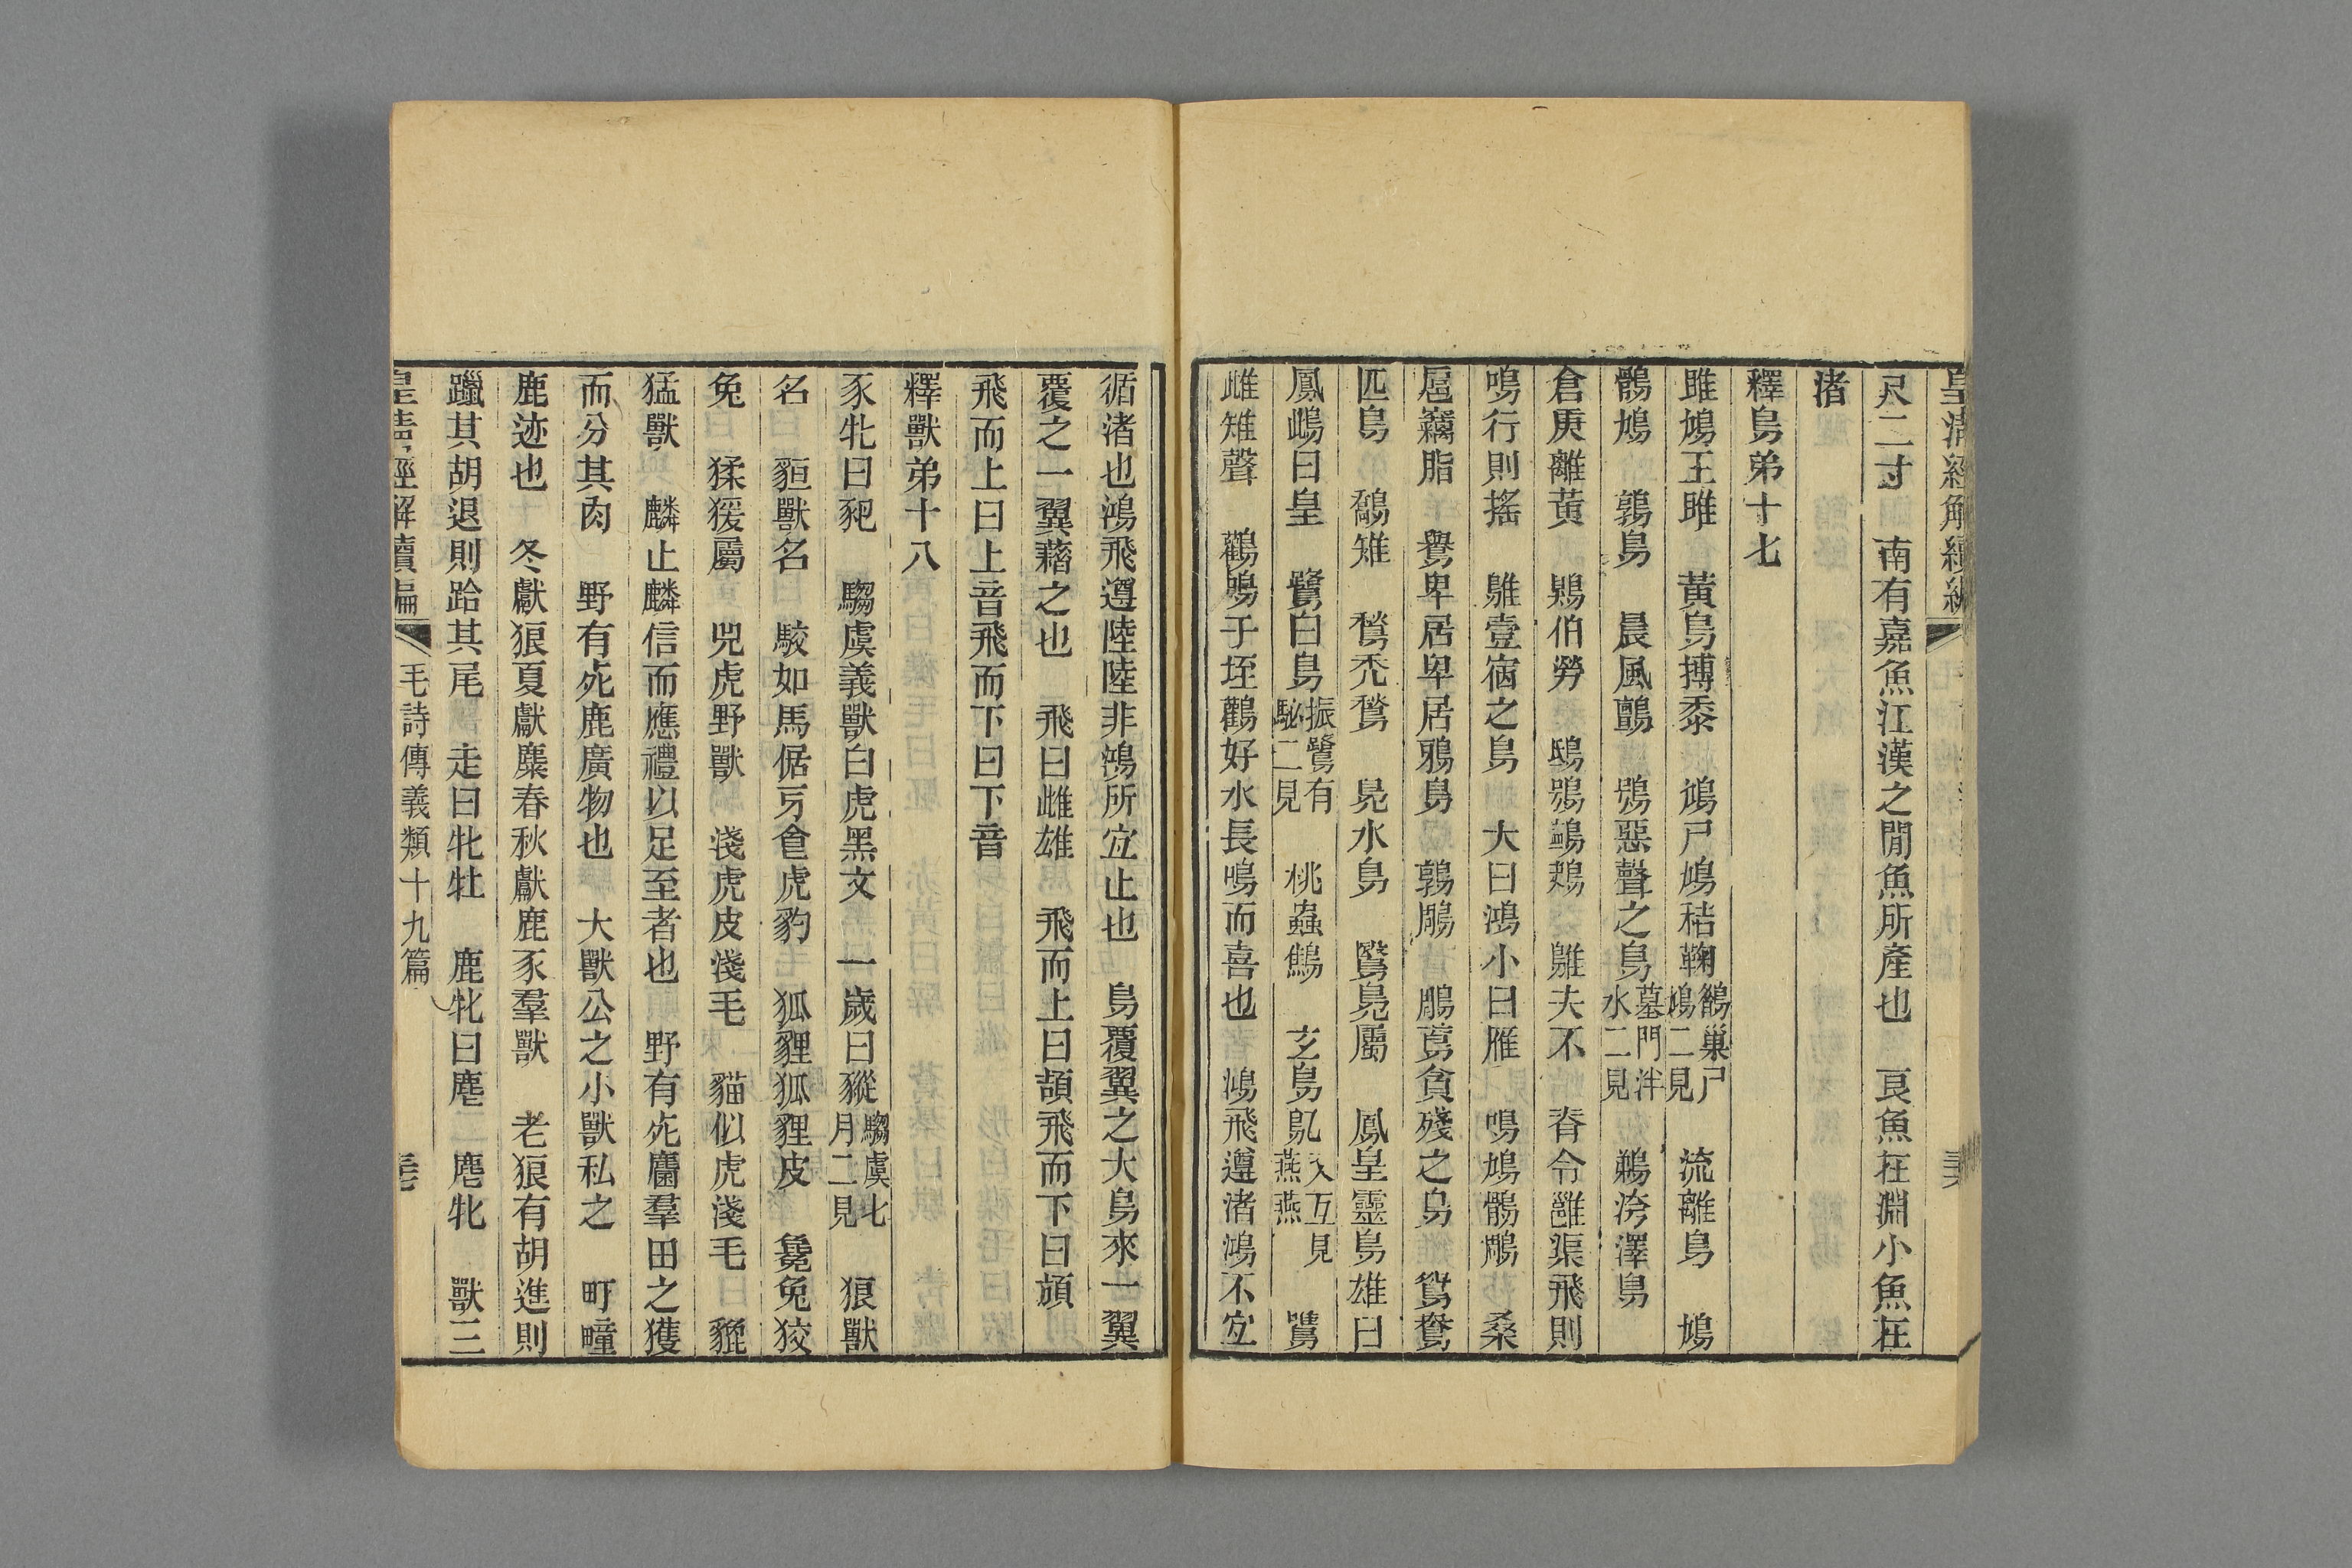 皇清經解續編
尺二寸　南有嘉魚江漢之閒魚所產也　良魚在淵小魚在
渚
釋鳥弟十七
雎鳩王雎　黃鳥搏黍　鳲尸鳩秸鞠鵲巢尸鳩二見　流離鳥　鳩
鶻鳩　鶉鳥　晨風鸇　鴞惡聲之鳥墓門泮水二見　鵜洿澤鳥
倉庚離黃　鶪伯勞　鴟鴞鸋鴂　鵻夫不　脊令雝渠飛則
鳴行則搖　鵻壹宿之鳥　大曰鴻小曰雁　鳴鳩鶻鵰　桑
扈竊脂　鸒卑居卑居鴉舄　鶉鵰　鵰鳶貪殘之鳥　鴛鴦
匹鳥　鷮雉　鶖禿鶖　鳧水鳥　鷖鳧屬　鳳皇靈鳥雄曰
鳳鴟曰皇　鷺白鳥振鷺有駜二見　桃蟲鷦　玄鳥鳦又互見燕燕　鷕
雌雉聲　鸛鳴于垤鸛好水長鳴而喜也　鴻飛遵渚鴻不宜
循渚也鴻飛遵陸陸非鴻所宜止也　鳥覆翼之大鳥來一翼
覆之一翼藉之也　飛曰雌雄　飛而上曰頡飛而下曰頏
飛而上曰上音飛而下曰下音
釋獸弟十八
豕牝曰豝　騶虞義獸白虎黑文　一歲曰豵騶虞七月二見　狼獸
名　貆獸名　駮如馬倨牙食虎豹　狐貍狐貍皮　毚兔狡
兔　猱猨屬　兕虎野獸　淺虎皮淺毛　貓似虎淺毛　貔
猛獸　麟止麟信而應禮以足至者也　野有死麕羣田之獲
而分其肉　野有死鹿廣物也　大獸公之小獸私之　町畽
鹿迹也　冬獻狼夏獻麋春秋獻鹿豕羣獸　老狼有胡進則
躐其胡退則跲其尾　走曰牝牡　鹿牝曰麀　麀牝　獸三
皇清經解續編　毛詩傳義類十九篇